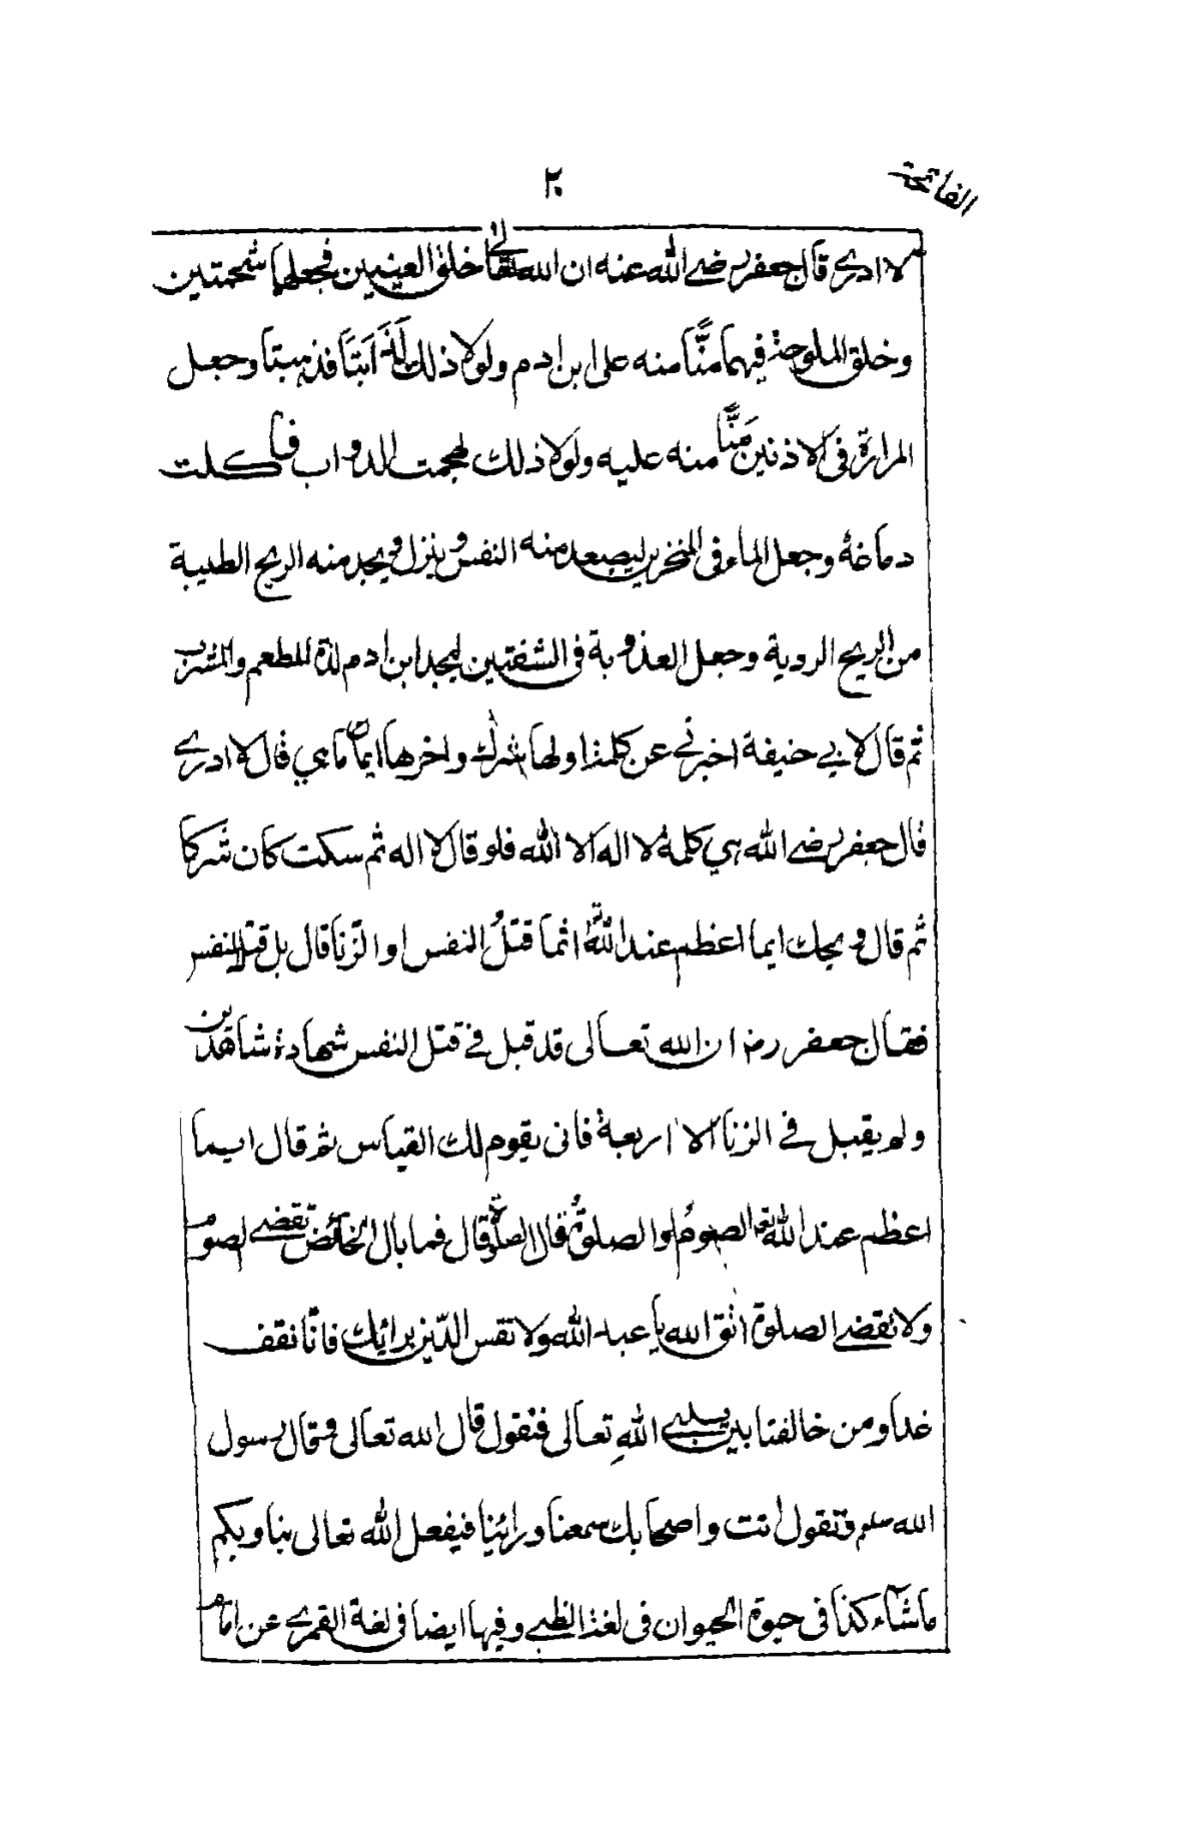 الفاتحة
٢٠
لا ادري قال جعفر رضي الله عنه ان الله تعالى خلق العينين فجعلها شحمتين
وخلق الملوحة فيهما منًّا منه على ابن ادم ولولا ذلك فذهبتا وجعل
المرارة فى الاذنين مَنًّا منه عليه ولولا ذلك لهجمت الدواب فاكلت
دماغهُ وجعل الماء فى المنخرين ليصعد منه النفس وينزل ويجد منه الريح الطيبة
من الريح الردية وجعل العذوبة فى الشفتين ليجد ابن ادم لذة المطعم والمشرب
ثم قال لابي حنيفة اخبرني عن كلمة اولها شرك واخرها ايمان ما هي قال لا ادري
قال جعفر رضي الله هي كلمة لا اله الا الله فلو قال لا اله ثم سكت كان شركا
ثم قال ويحك ايما اعظم عند اللّٰه اثما قتلُ النفس او الزّنا قال بل قتل النفس
فقال جعفر رض ان الله تعالى قد قبل في قتل النفس شهادة شاهدين
ولم يقبل في الزنا الا اربعة فانى يقوم لك القياس ثم قال ايما
اعظم عند الله الصومُ او الصلوةُ قال الصلوة قال فما بال الحائض تقضي الصوم
ولا تقضي الصلوة اتق الله يا عبد الله ولا تقس الدّين برائك فانّا نقف
غدا ومن خالفنا بين يدي اللهِ تعالى فنقول قال الله تعالى وقال رسول
الله صلعم وتقول انت واصحابك سمعنا وراينا فيفعل الله تعالى بنا وبكم
ما شآء كذا فى حيوة الحيوان فى لغة الظبي وفيها ايضا فى لغة القمري عن امام